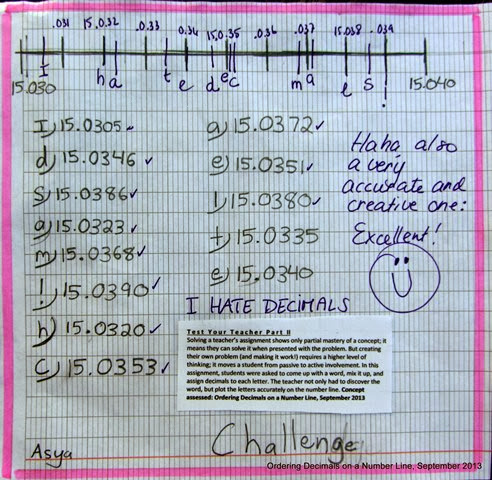 .031 15.0.32 .0.33 .0.34 15.0.35 .0.36 .037 15.038 .039
I h a t e d e c m a l s !
15.030 15.040
I) 15.0305 ✓
d) 15.0346 ✓
S) 15.0386 ✓
a) 15.0323 ✓
m) 15.0368 ✓
!) 15.0390 ✓
h) 15.0320 ✓
c) 15.0353 ✓
a) 15.0372 ✓
e) 15.0351 ✓
l) 15.0380 ✓
t) 15.0335
e) 15.0340
Haha, also
a very
accurate and
creative one:
Excellent!
I HATE DECIMALS
Test Your Teacher Part II
Solving a teacher's assignment shows only partial mastery of a concept; it
means they can solve it when presented with the problem. But creating
their own problem (and making it work!) requires a higher level of
thinking; it moves a student from passive to active involvement. In this
assignment, students were asked to come up with a word, mix it up, and
assign decimals to each letter. The teacher not only had to discover the
word, but plot the letters accurately on the number line. Concept
assessed: Ordering Decimals on a Number Line, September 2013
Challenge
Asya
Ordering Decimals on a Number Line, September 2013